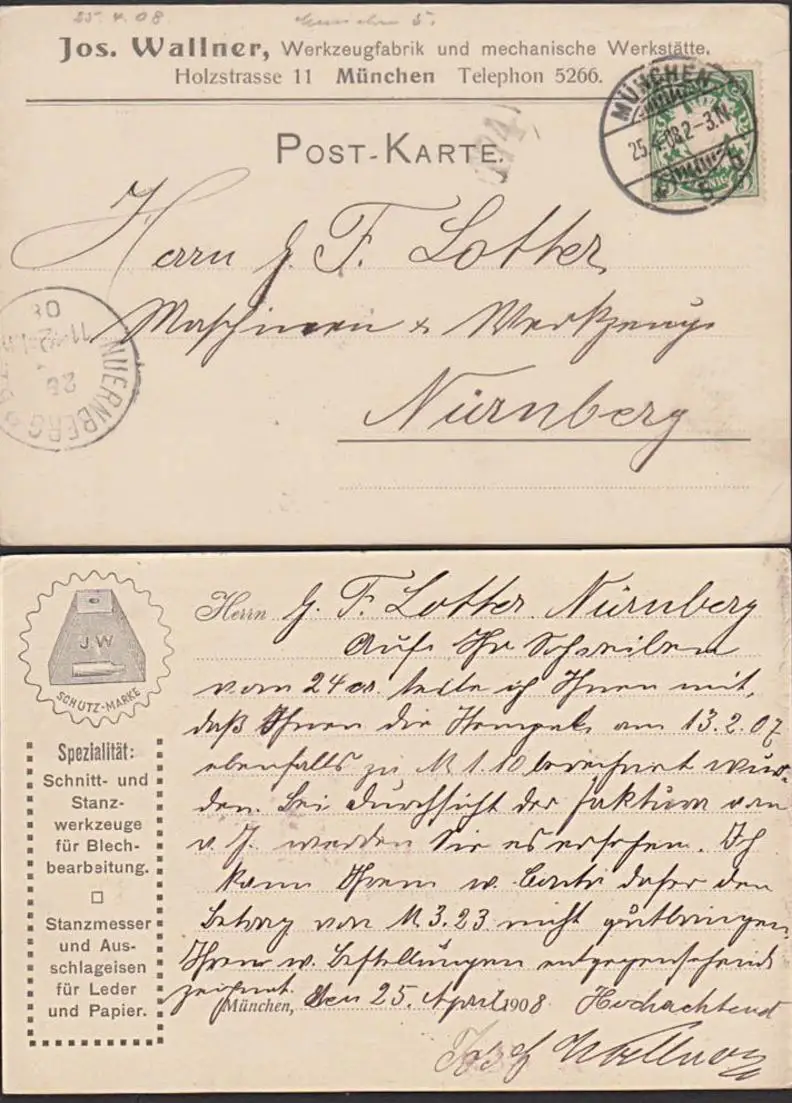 25.4.08
Jos. Wallner, Werkzeugfabrik und mechanische Werkstätte.
Holzstrasse 11 München Telephon 5266.
POST-KARTE.
MÜNCHEN
25.4.08.2-3.N.
Herrn G. F. Lotter
Maschinen & Werkzeuge
Nürnberg
NUERNBERG
J.W
SCHUTZ-MARKE
Spezialität:
Schnitt- und
Stanz-
werkzeuge
für Blech-
bearbeitung.
Stanzmesser
und Aus-
schlageisen
für Leder
und Papier.
Herrn G. F. Lotter Nürnberg
Auf Ihr Schreiben
vom 24 cr. teile ich Ihnen mit,
daß Ihnen die Stempel am 13.2.07
ebenfalls zu M 1.10 berechnet wur-
den. Bei Durchsicht der Faktura vom
v. J. werden Sie es ersehen. Ich
kann Ihrem w. Conto daher den
Betrag von M 3.23 nicht gutbringen.
Ihren w. Bestellungen entgegensehend
zeichnet
München, den 25. April 1908 Hochachtend
Josef Wallner